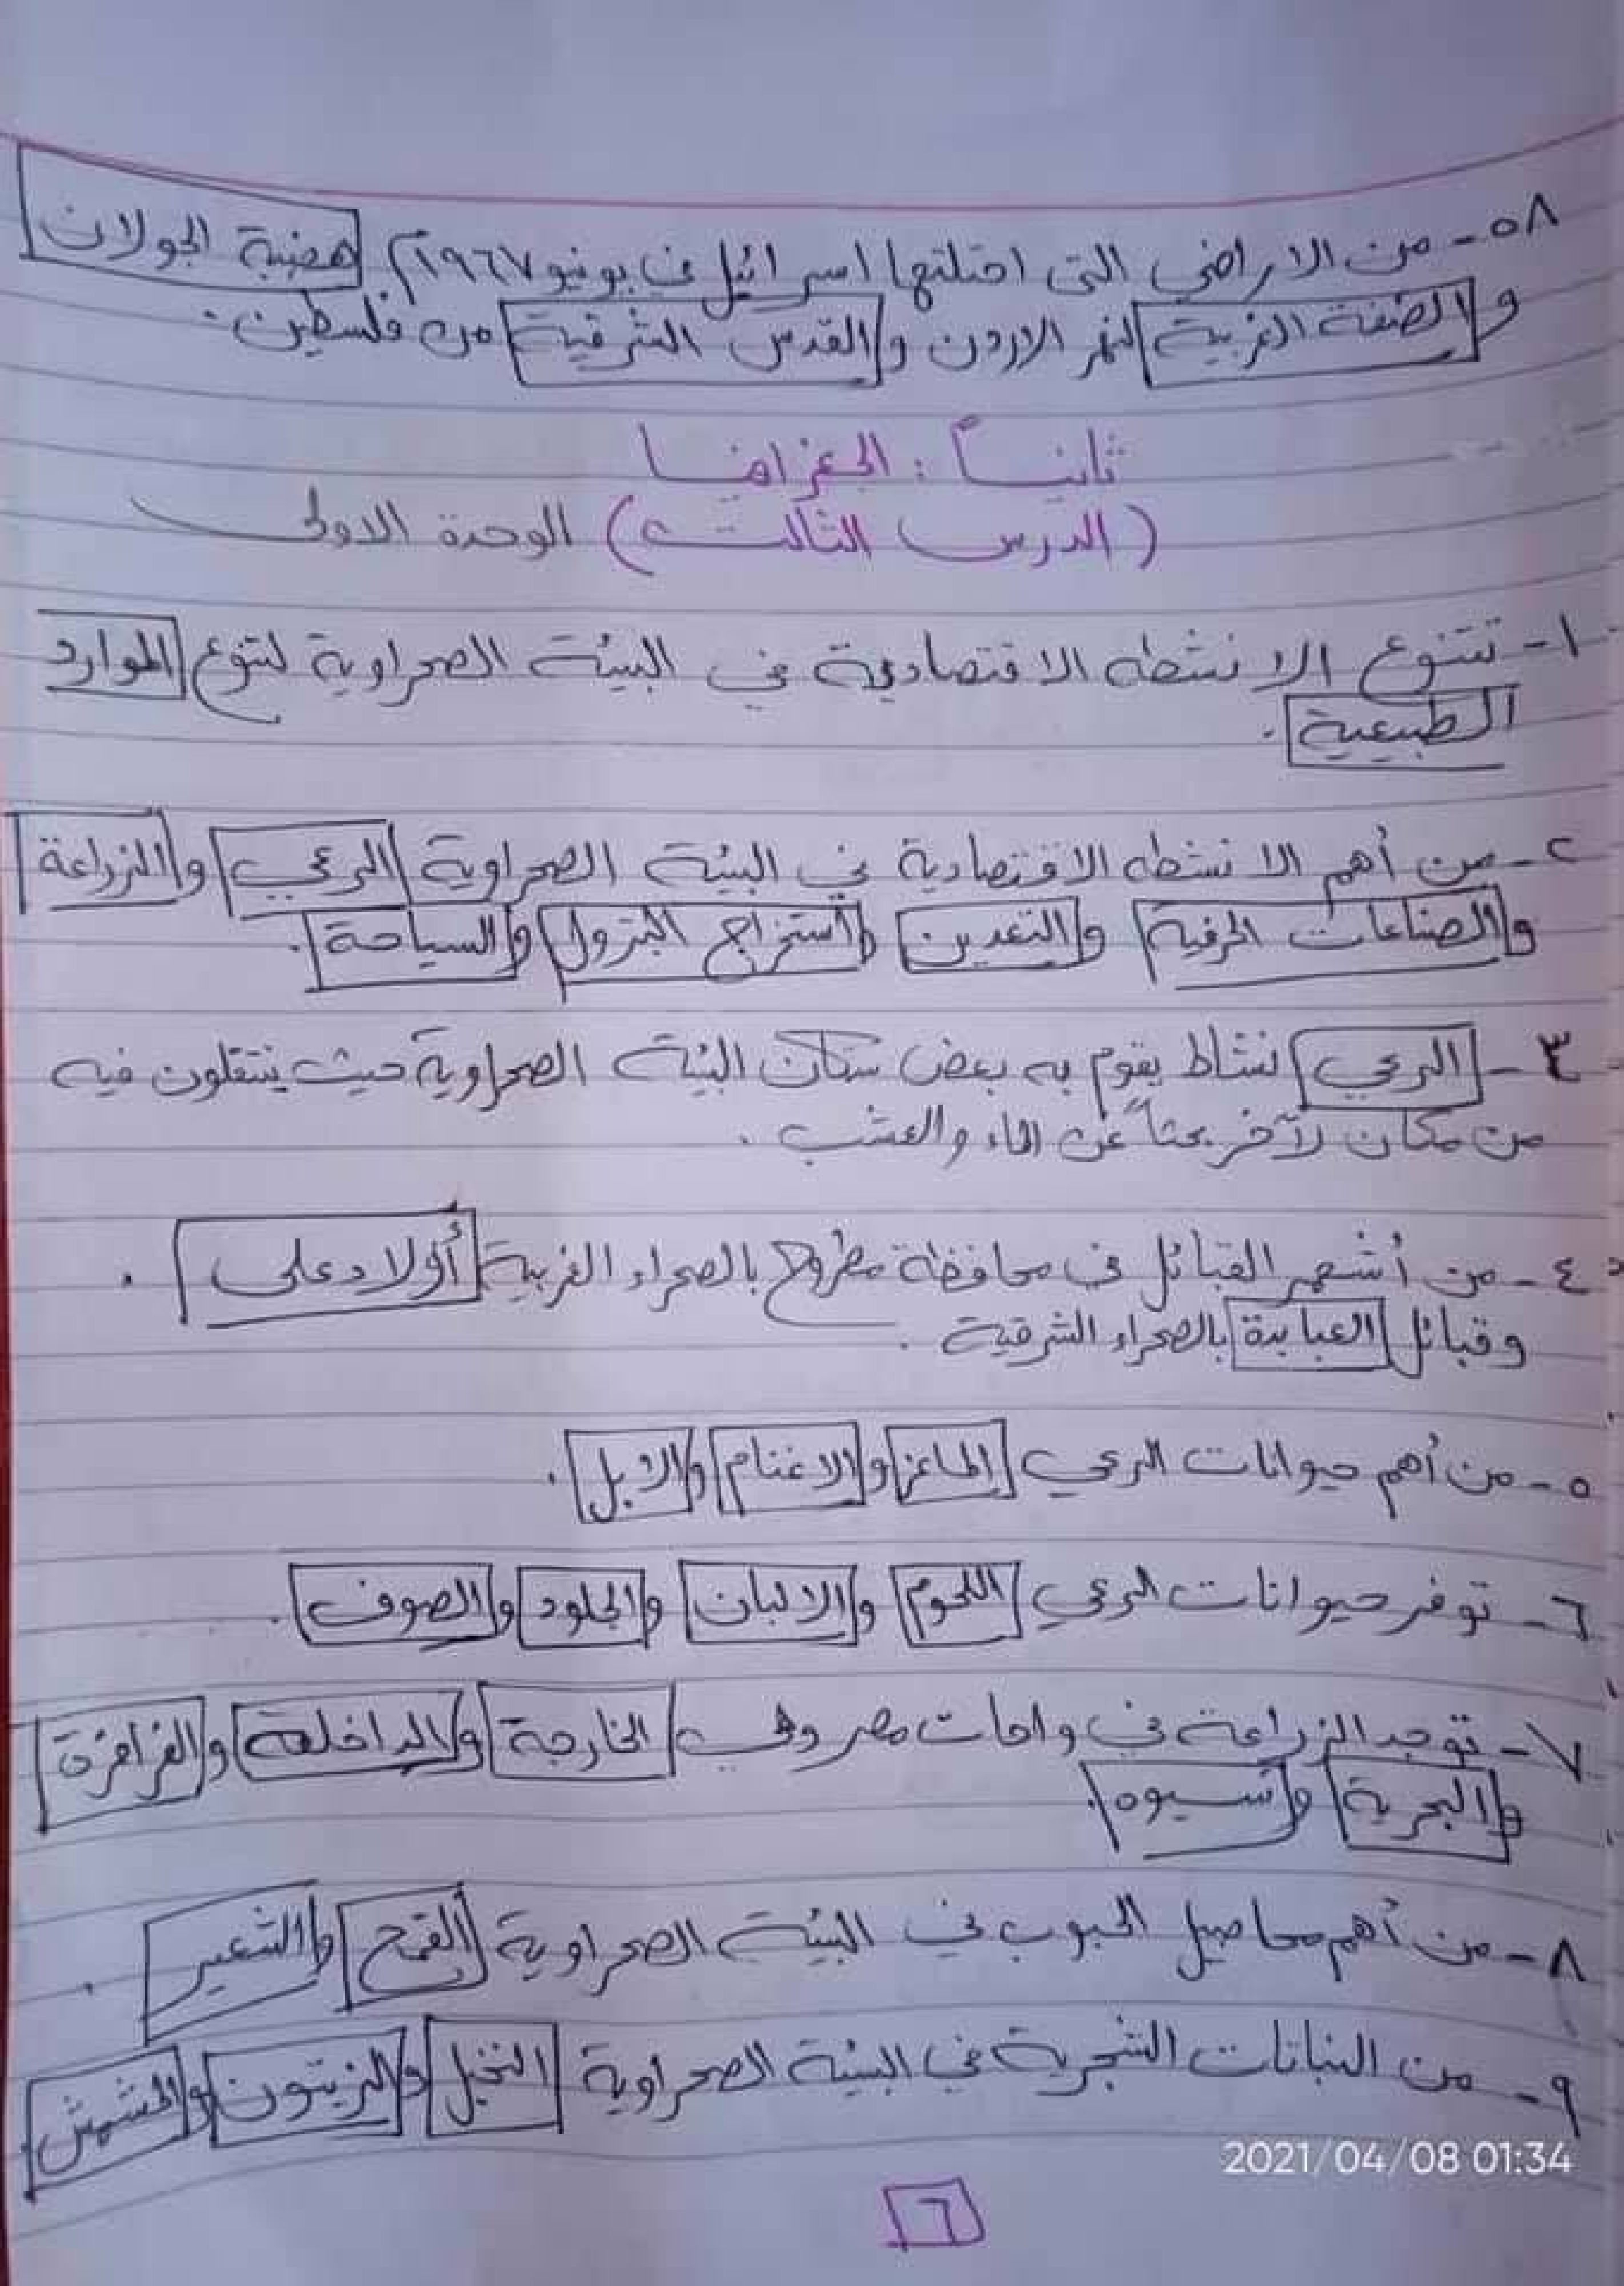 ٥٨- من الاراضي التى احتلتها اسرائيل في يونيو ١٩٦٧م هضبة الجولان
و الضفة الغربية لنهر الاردن والقدس الشرقية من فلسطين.
ثانياً : الجغرافيا
(الدرس الثالث) الوحدة الاولى
١- تتنوع الانشطه الاقتصادية في البيئة الصحراوية لتنوع الموارد
الطبيعية.
٢- من أهم الانشطه الاقتصادية في البيئة الصحراوية الرعي والزراعة
والصناعات الحرفية والتعدين واستخراج البترول والسياحة.
٣- الرعي نشاط يقوم به بعض سكان البيئة الصحراوية حيث ينتقلون فيه
من مكان لآخر بحثاً عن الماء والعشب.
٤- من أشهر القبائل في محافظة مطروح بالصحراء الغربية أولاد على.
وقبائل العبابدة بالصحراء الشرقية.
٥- من أهم حيوانات الرعي الماعز والاغنام والابل.
٦- توفر حيوانات الرعي اللحوم والالبان والجلود والصوف.
٧- توجد الزراعة في واحات مصر وهي الخارجة والداخلة والفرافرة
والبحرية وسيوه.
٨- من أهم محاصيل الحبوب في البيئة الصحراوية القمح والشعير.
٩- من النباتات الشجرية في البيئة الصحراوية النخيل والزيتون والمشمش
2021/04/08 01:34
٦